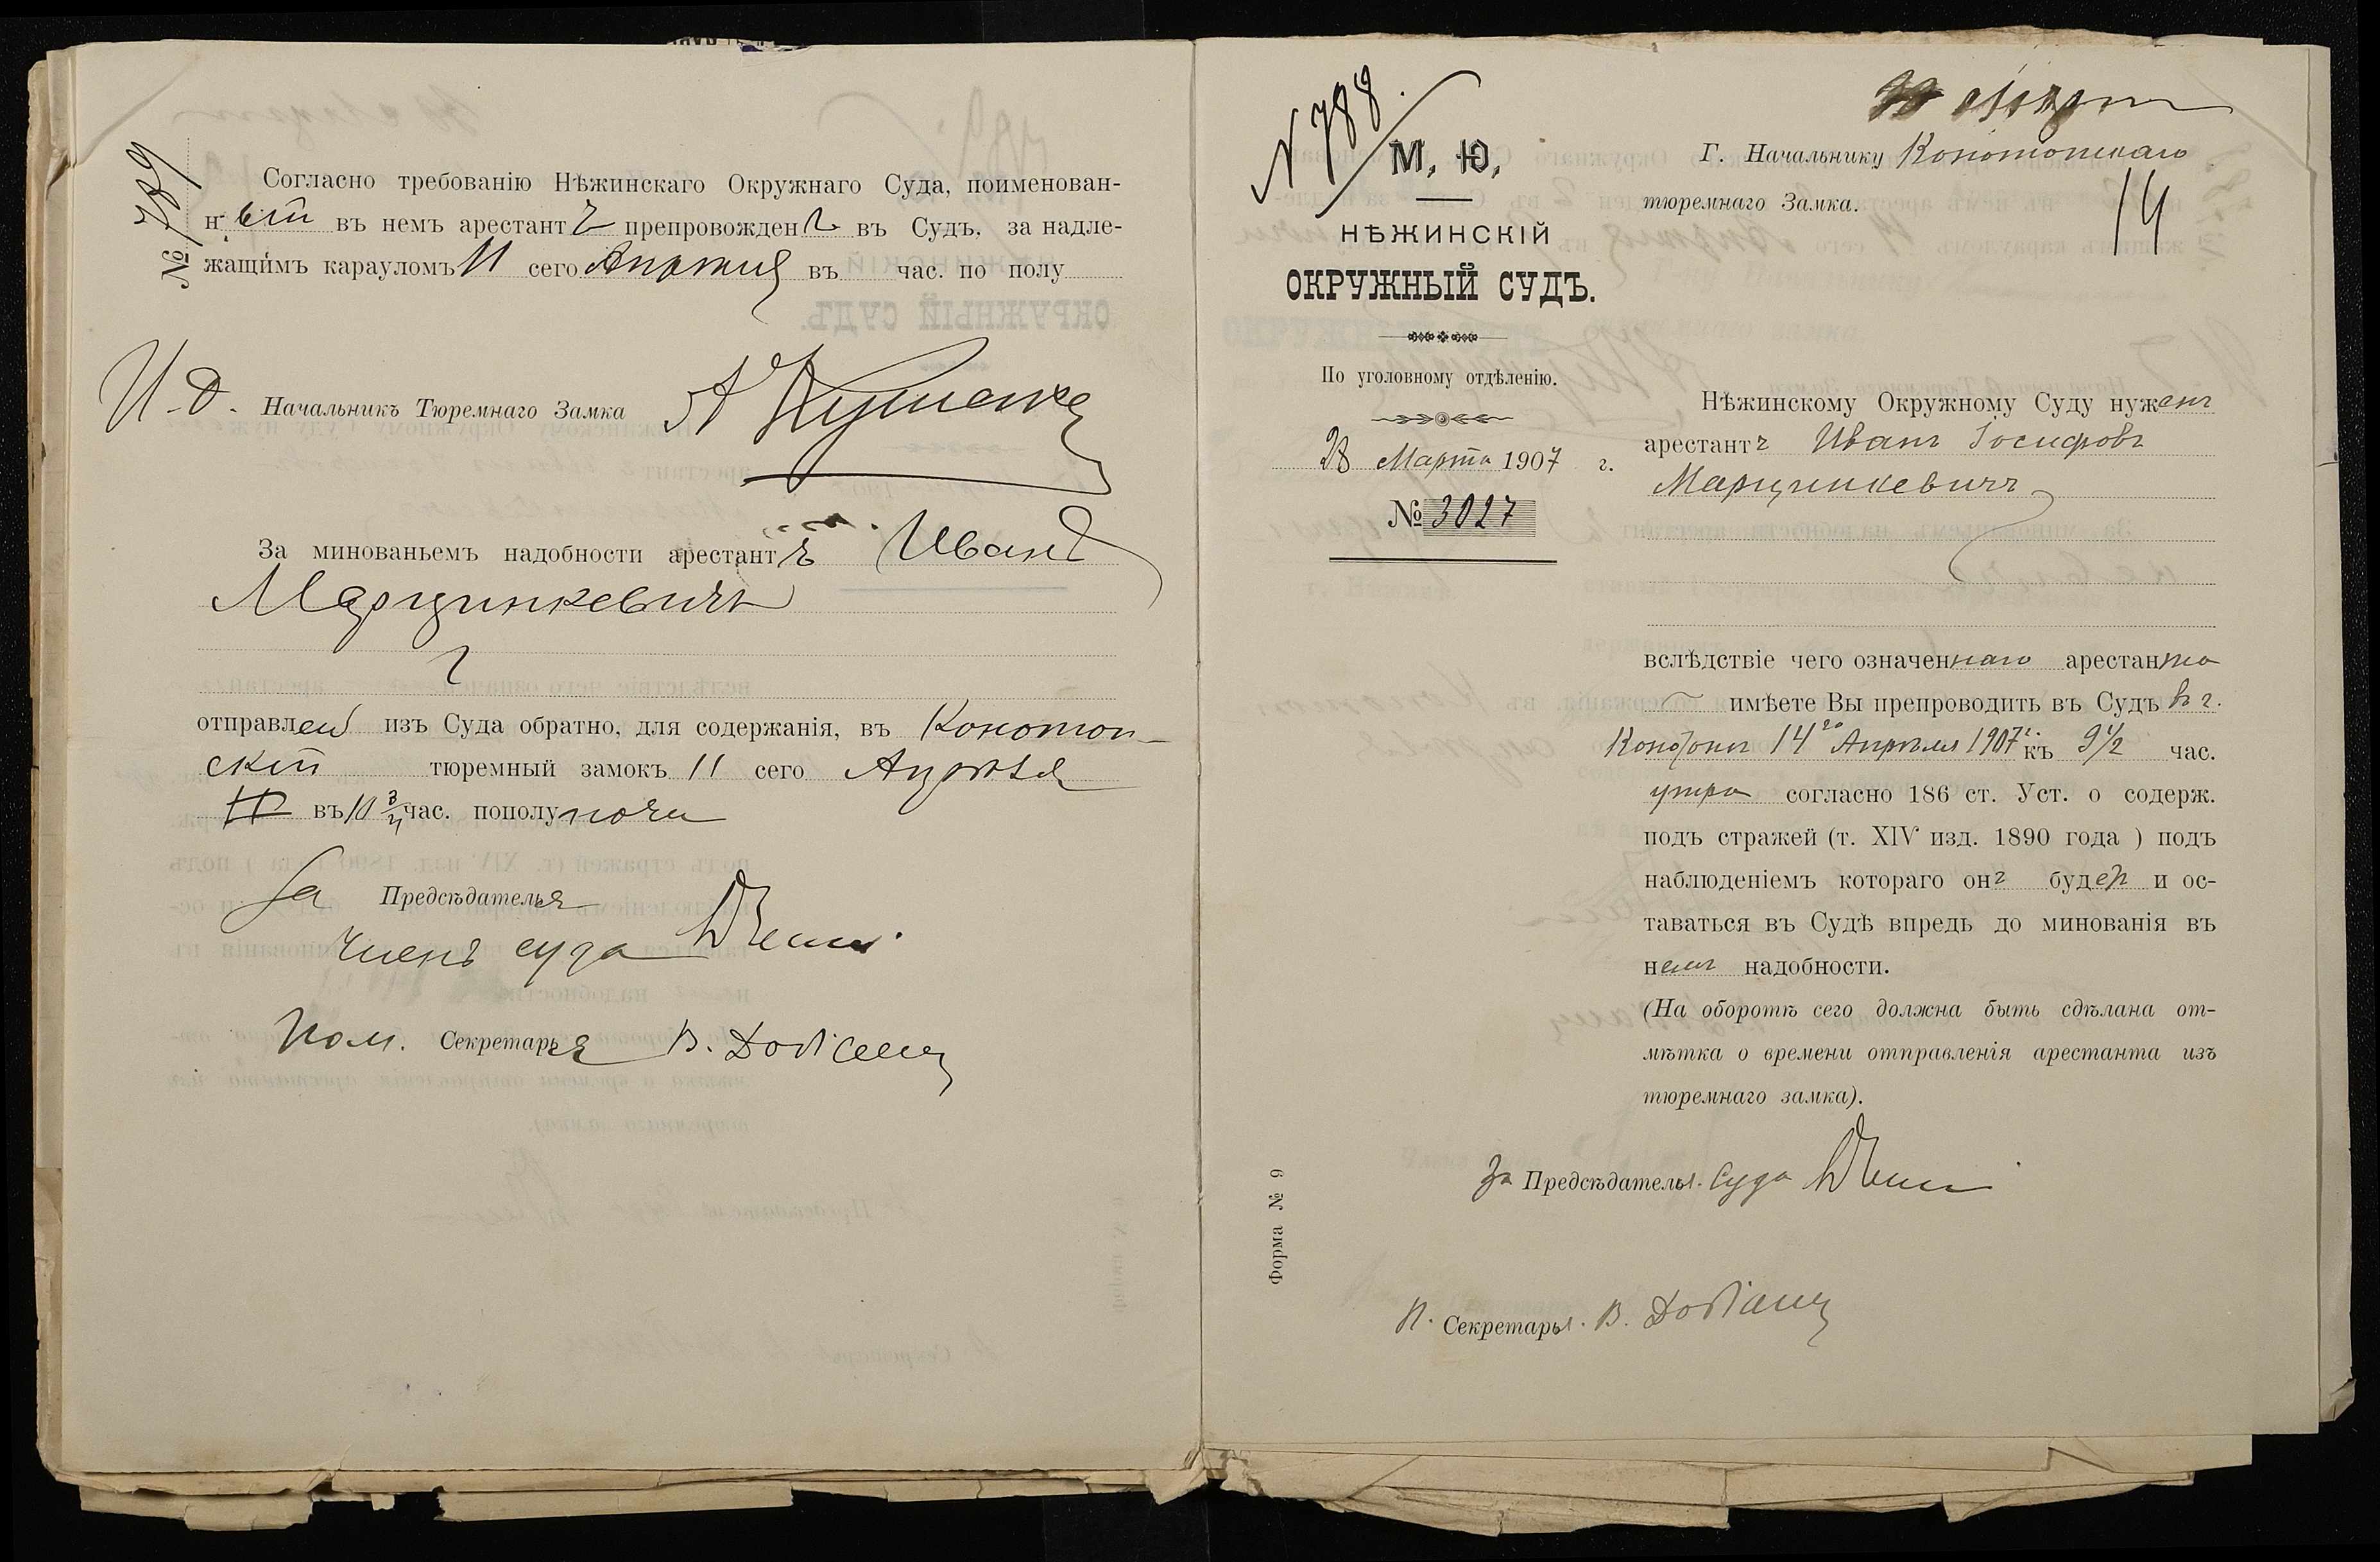 № 789
Согласно требованію Нѣжинскаго Окружнаго Суда, поименован-
ный въ немъ арестантъ препровожденъ въ Судъ, за надле-
жащимъ карауломъ 11 сего Апрѣля въ час. по полу
И. д. Начальникъ Тюремнаго Замка
За минованьемъ надобности арестантъ Иванъ
Марцинкевичъ
отправлен изъ Суда обратно, для содержанія, въ Конотоп-
скій тюремный замокъ 11 сего Апрѣля
въ 10 3/4 час. пополуночи
За Предсѣдателя
Членъ суда
Пом. Секретаря В.
N 788.
М. Ю.
НѢЖИНСКІЙ
ОКРУЖНЫЙ СУДЪ.
По уголовному отдѣленію.
28 Марта 1907 г.
№ 3027
Форма № 9
Г. Начальнику Конотопскаго
тюремнаго Замка.
14
Нѣжинскому Окружному Суду нуженъ
арестантъ Иванъ Іосифовъ
Марцинкевичъ
вслѣдствіе чего означеннаго арестанта
имѣете Вы препроводить въ Судъ въ г.
Конотопъ 14го Апрѣля 1907 г. къ 9 1/2 час.
утра согласно 186 ст. Уст. о содерж.
подъ стражей (т. XIV изд. 1890 года ) подъ
наблюденіемъ котораго онъ будетъ и ос-
таваться въ Судѣ впредь до минованія въ
немъ надобности.
(На оборотѣ сего должна быть сдѣлана от-
мѣтка о времени отправленія арестанта изъ
тюремнаго замка).
За Предсѣдателя. Суда
П. Секретаря. В.